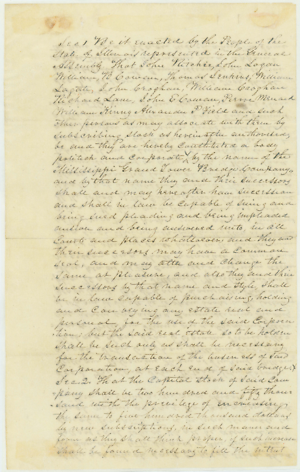 Sec 1 Be it enacted by the People of the
State of Illinois represented in the General
Assembly That John Logan
William Thomas Jenkins, William
John Croghan, William Croghan
Richard Lane, John Pierre Menard
William Field and such
other persons as may associate with them by
subscribing Stock as herein after authorised,
be and they are hereby constituted a body
politick and Corporate, by the name of the
Mississippi Grand Tower Bridge Company,
and by that name they and their successors
shall and may hereafter have succession
and shall in law be capable of suing and
being sued pleading and being impleaded
answer and being answered unto in all
Courts and places whatsoever and they and
their successors may have a Common
Seal, and may alter and change the
Same, at pleasure, and also they and their
Successors by that name and Style, shall
be in law Capable of purchasing, holding
and Conveying any estate real and
personal for the use of the said Corpora
tion, but the said real estate so to be holden
shall be such only as shall be necessary
for the transaction of the business of said
Corporation, at each end of said bridge
Sec 2 That the Capital Stock of said Com
pany shall be two hundred and fifty thou
sand with the privilege of increasing
the same to five hundred thousand dollars
by new subscriptions, in such manner and
form as they shall think proper if such increase
shall be found necessary to fulfill the